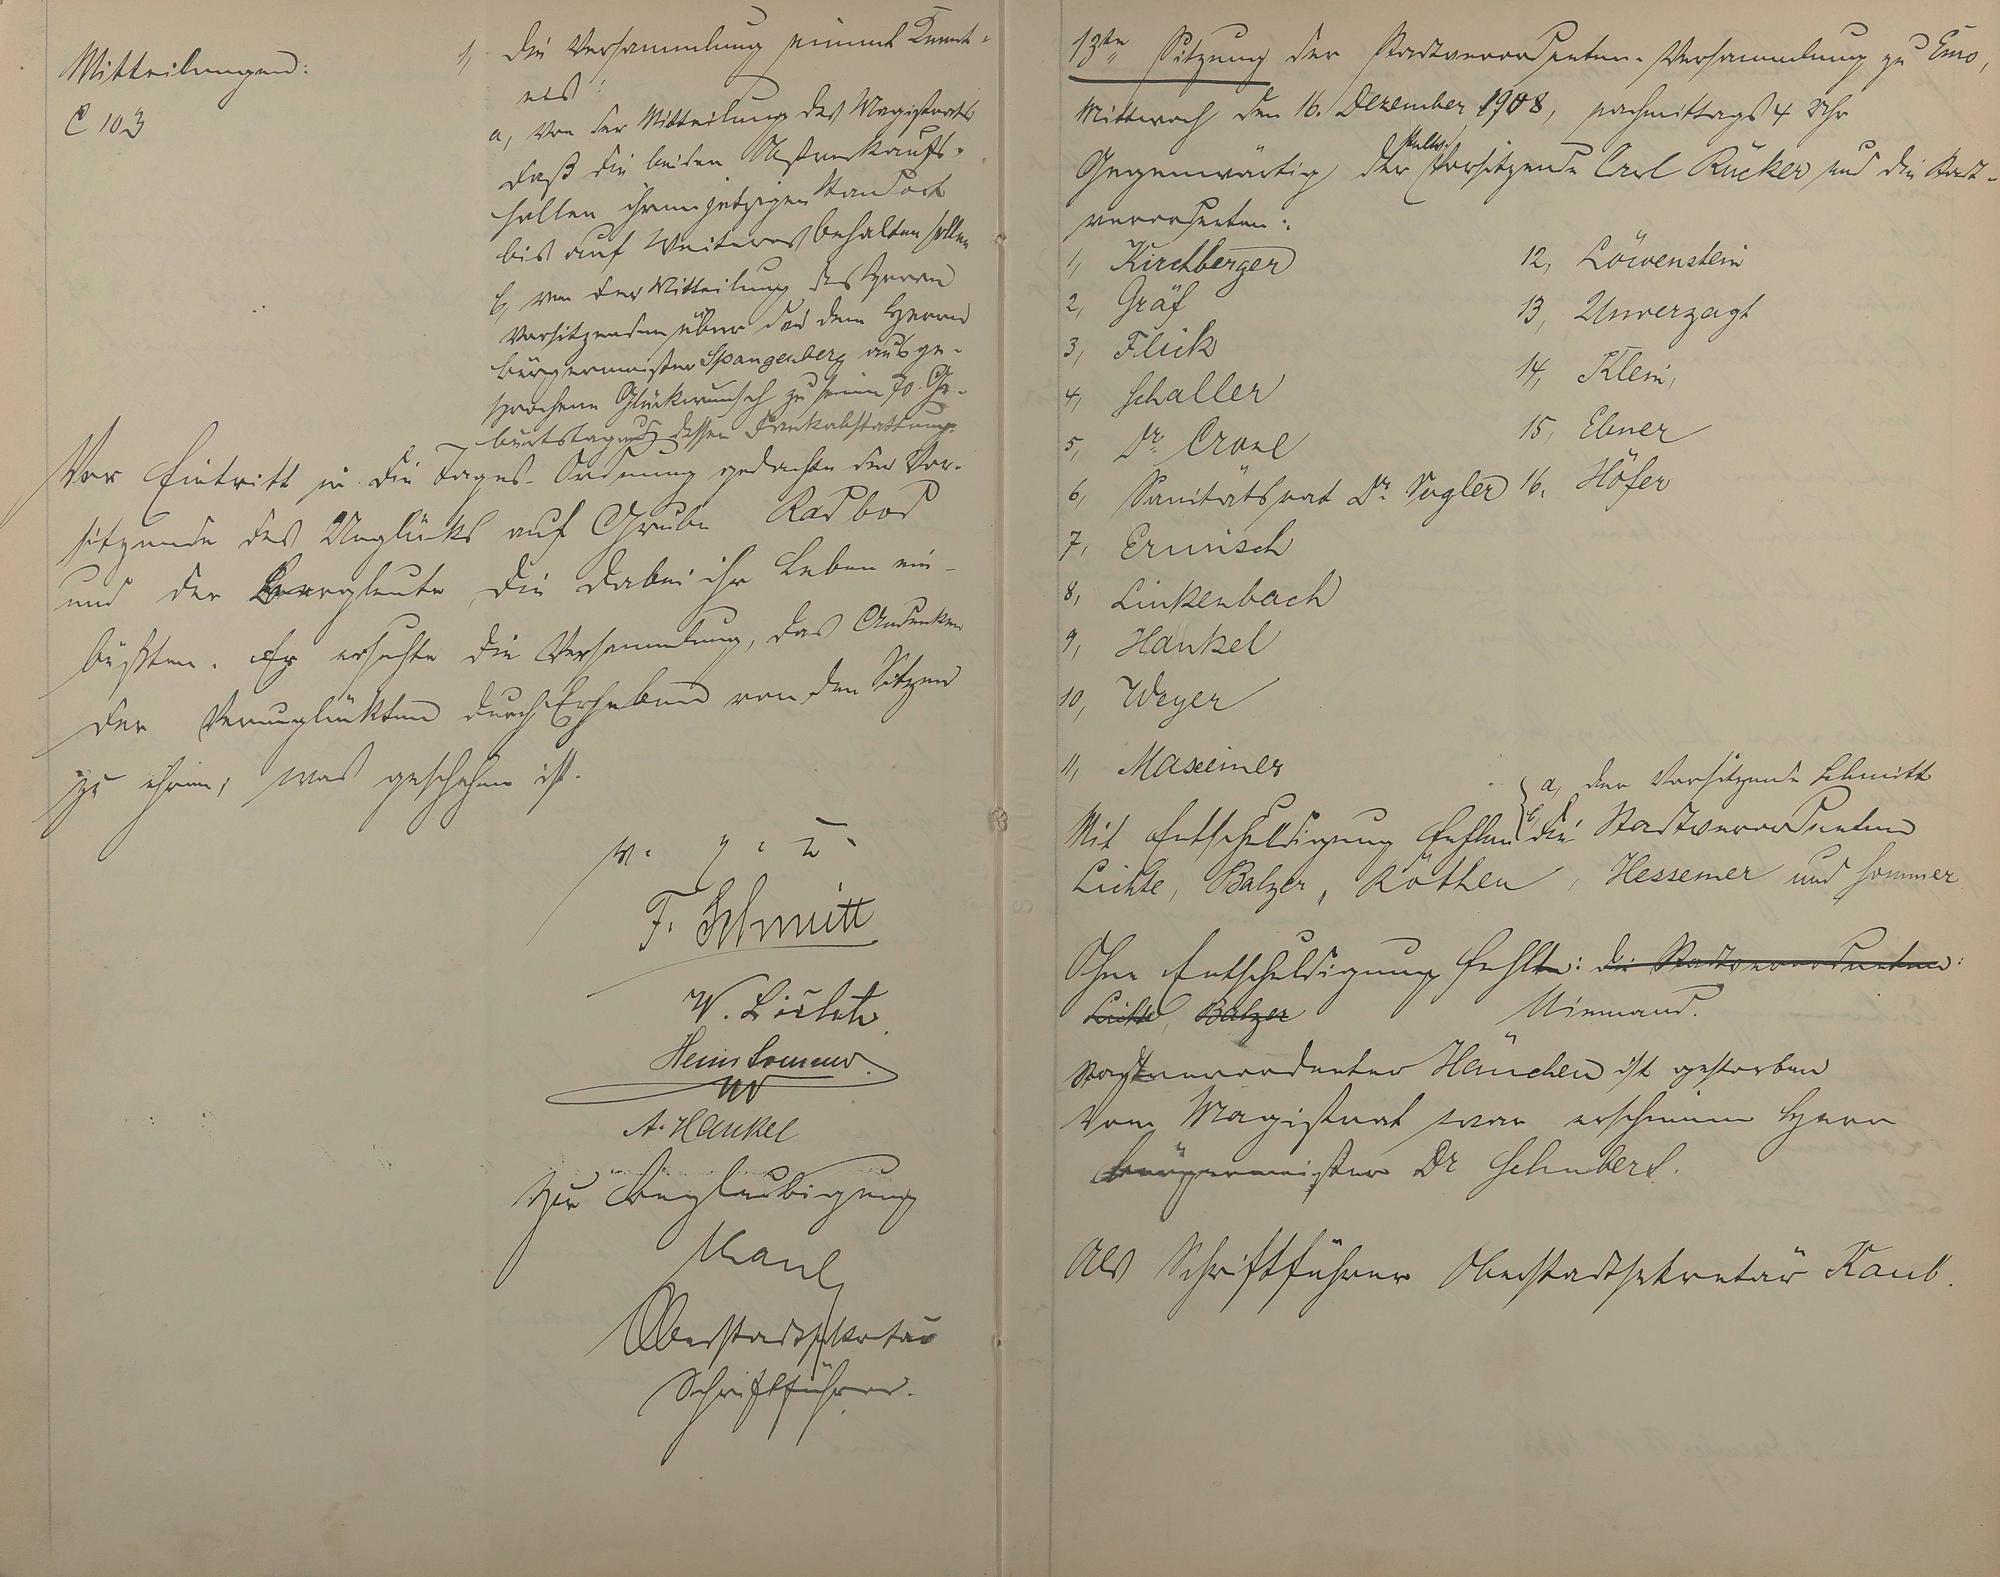 Mitteilungen:
C 103
1, Die Versammlung nimmt Kennt-
nis:
a, von der Mitteilung des Magistrats
daß die beiden Obstverkaufs-
hallen ihren jetzigen Standort
bis auf Weiteres behalten sollen
b, von der Mitteilung des Herrn
Vorsitzenden über den dem Herrn
Bürgermeister Spangenberg ausge-
sprochenen Glückwunsch zu seinem 70. Ge-
burtstag und dessen Dankabstattung.
Vor Eintritt in die Tages-Ordnung gedachte der Vor-
sitzende des Unglücks auf Grube Radbod
und der Bergleute, die dabei ihr Leben ein-
büßten. Er ersuchte die Versammlung, das Andenken
der Verunglückten durch Erheben von den Sitzen
zu ehren, was geschehen ist.
v. g. u.
F. Schmitt
W. Lichte
Heinr Sommer
A. Hankel
Zur Beglaubigung
Kaul
Oberstadtsekretär
Schriftführer.
13te Sitzung der Stadtverordneten-Versammlung zu Ems,
Mittwoch den 16. Dezember 1908, nachmittags 4 Uhr
Gegenwärtig der stellv. Vorsitzende Carl Rücker und die Stadt-
verordneten:
1, Kirchberger
2, Gräf
3, Flick
4, Schaller
5, Dr. Crone
6, Sanitätsrat Dr. Vogler
7, Ermisch
8, Linkenbach
9, Hankel
10, Weyer
11, Maxeiner
12, Löwenstein
13, Unverzagt
14, Klein,
15, Ebner
16. Höfer
a, der Vorsitzende Schmitt
Mit Entschuldigung fehlen b, die Stadtverordneten
Lichte, Balzer, Röthen, Hessemer und Sommer
Ohne Entschuldigung fehlte: die Stadtverordneten:
Lichte, Balzer Niemand.
Stadtverordneter Hänchen ist gestorben
Vom Magistrat war erschienen Herr
Bürgermeister Dr Schubert.
Als Schriftführer Oberstadtsekretär Kaul.